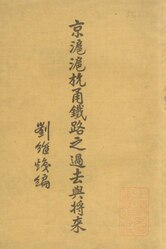 京滬滬杭甬鐵路之過去與將來
劉維𤋮編